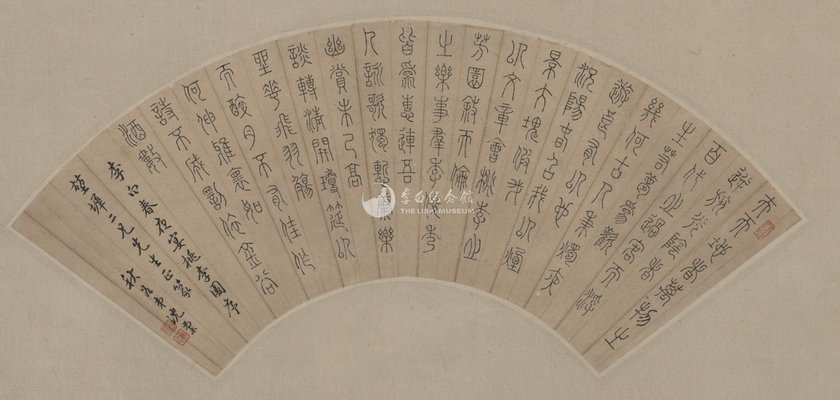 夫天地者萬物之
逆旅光陰者
百代之過客而浮
生若夢爲歡
幾何古人秉燭夜
遊良有以也
況陽春召我以煙
景大塊假我
以文章會桃李之
芳園敘天倫
之樂事群季俊秀
皆爲惠連吾
人詠歌獨慚康樂
幽賞未已高
談轉清開瓊筵以
坐花飛羽觴
而醉月不有佳作
何伸雅懷如
詩不成罰依金谷
酒數
李白春夜宴桃李園序
墀二兄先生正篆
弟沈
李白紀念館
THE LIBAI MUSEUM